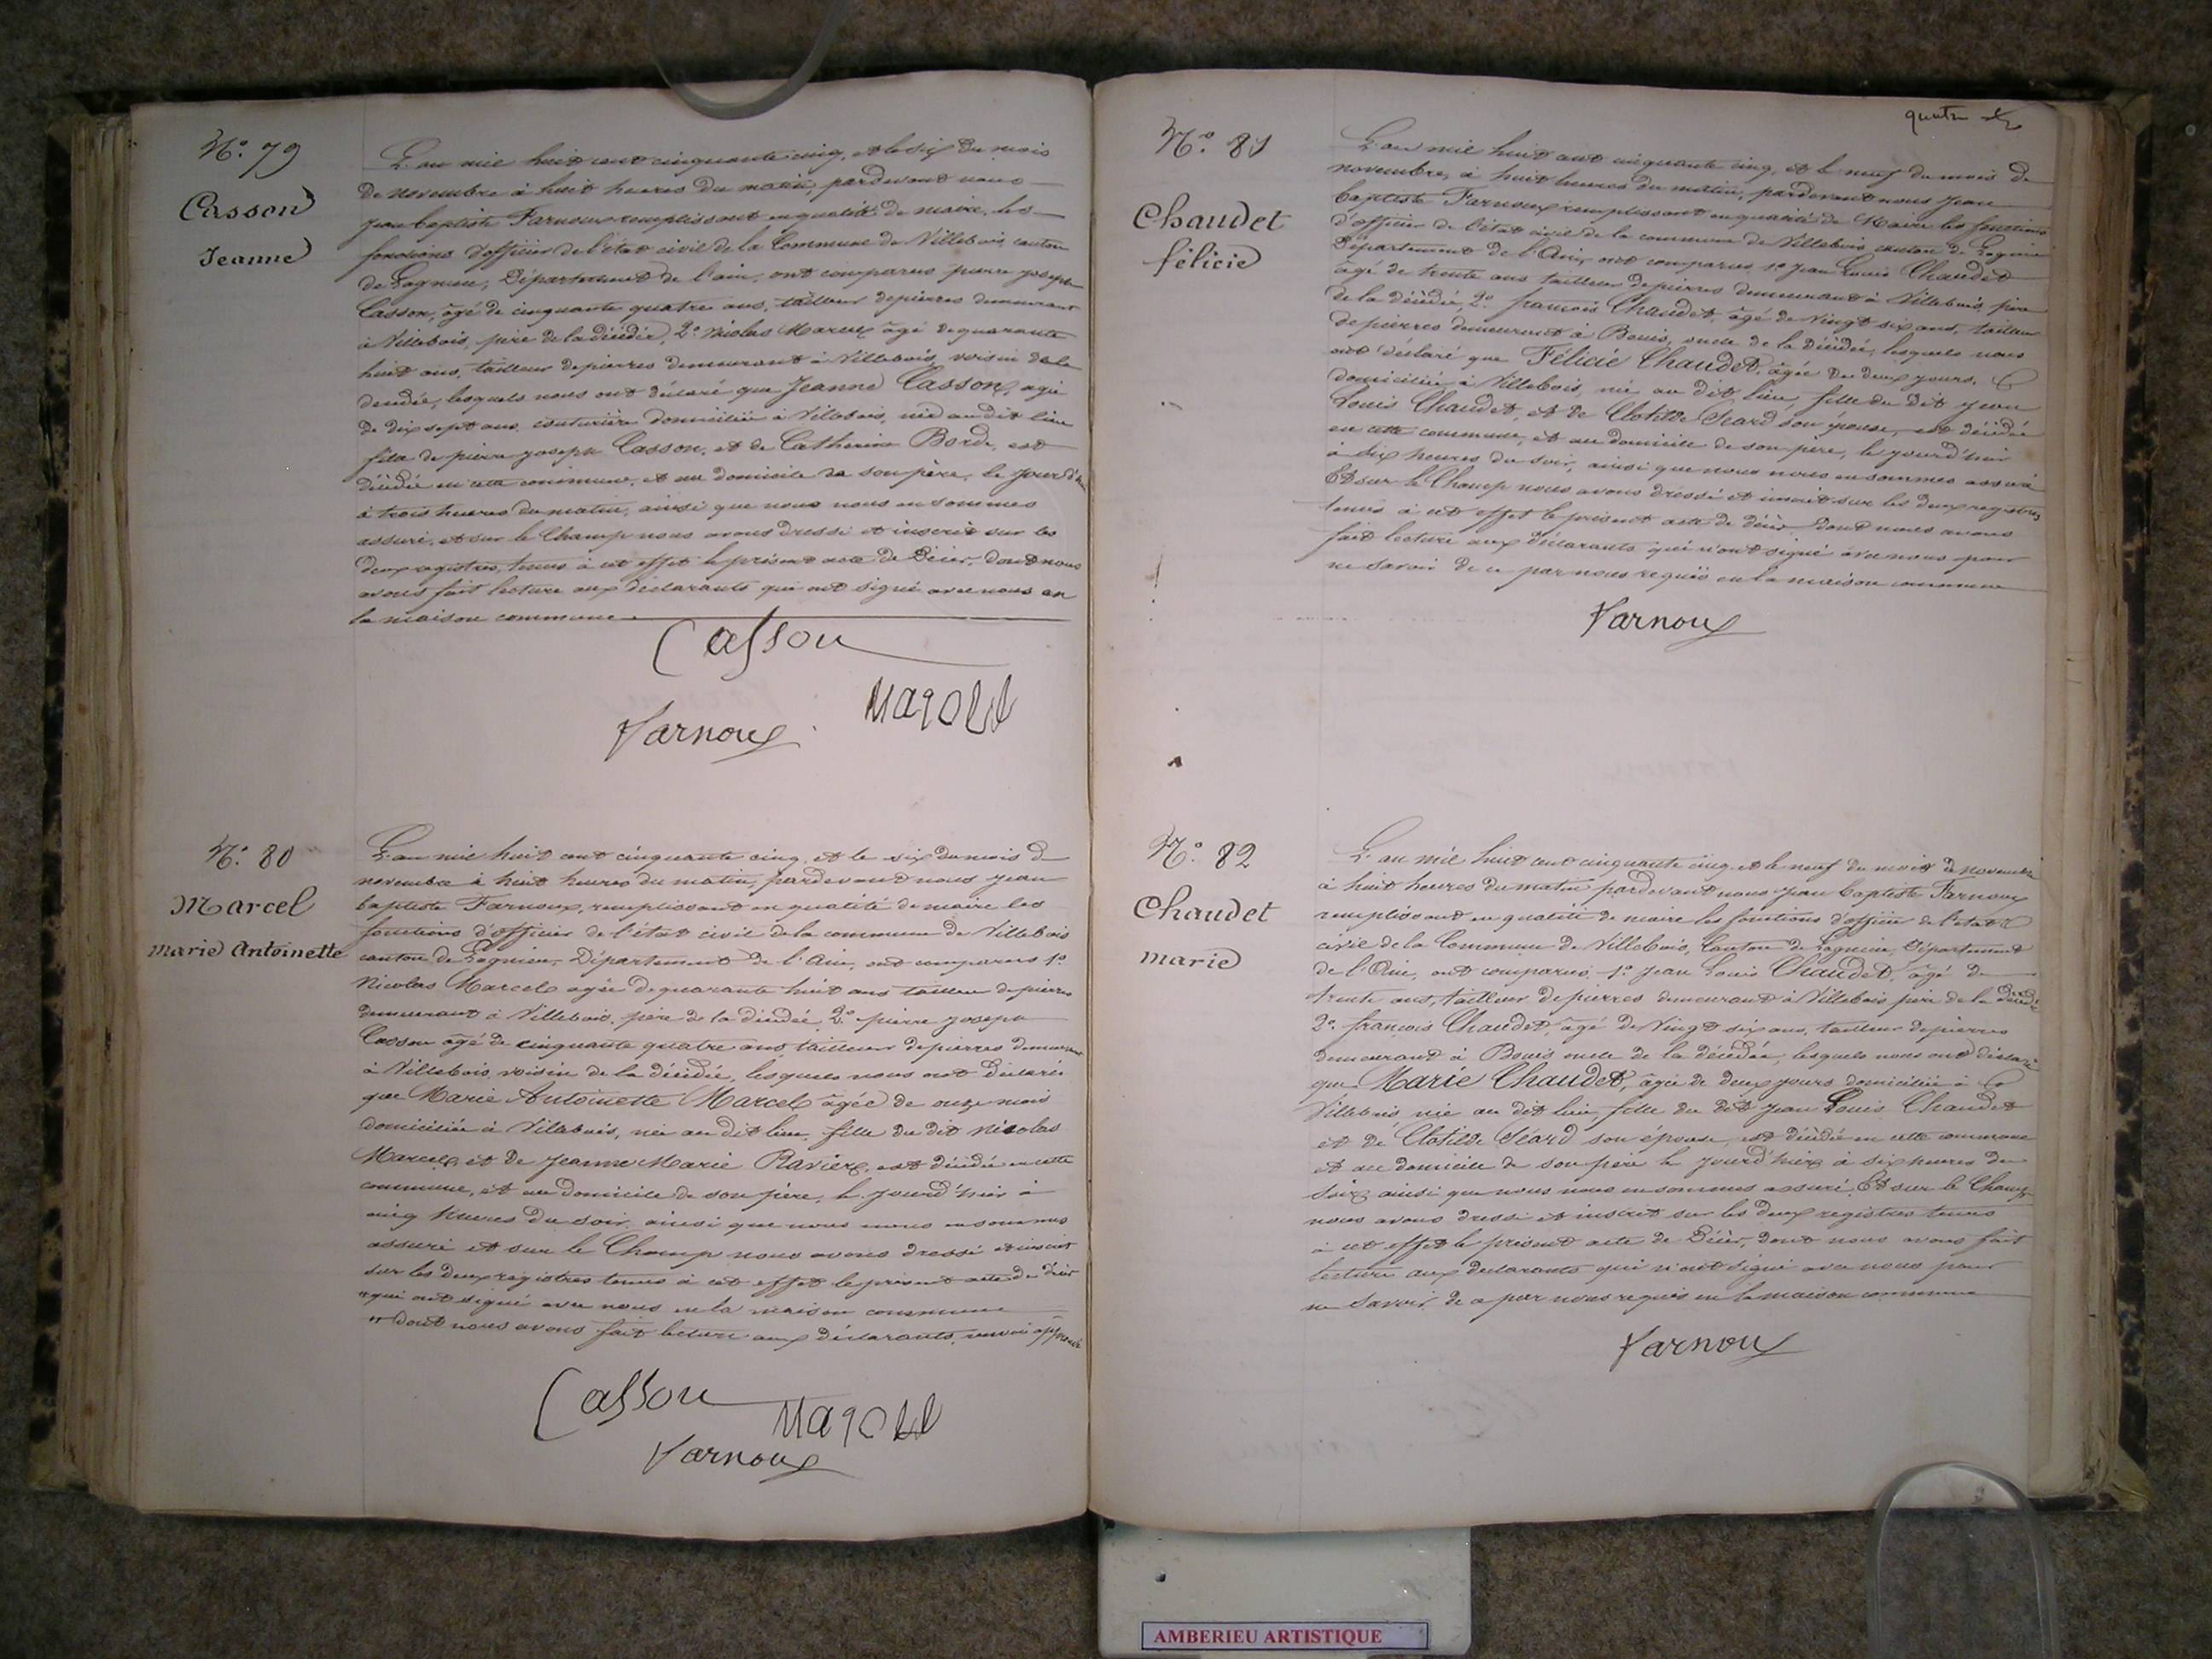 N.° 79
Casson
Jeanne
L'an mil huit cent cinquante cinq, et le six du mois
de novembre à huit heures du matin, pardevant nous
Jean Baptiste Farnoux remplissant en qualité de maire, les
fonctions d'officier de l'état civil de la Commune de Villebois, canton
de Lagnieu, Département de l'ain, ont comparus pierre joseph
Casson, âgé de cinquante quatre ans, tailleur de pierres demeurant
à Villebois, père de la décédée, 2.° Nicolas Marcel âgé de quarante
huit ans, tailleur de pierres demeurant à Villebois, voisin de la
décédée, lesquels nous ont déclaré que Jeanne Casson, agée
de dix sept ans couturière domiciliée à Villebois, née au dit lieu
fille de pierre joseph Casson, et de Catherine Borde, est
décédée en cette commune, et au domicile de son père, le jourd'hui
à trois heures du matin, ainsi que nous nous en sommes
assuré, et sur le Champ nous avons dressé et inscrit sur les
deux registres, tenus à cet effet le présent acte de Décès, dont nous
avons fait lecture aux déclarants qui ont signé avec nous en
la maison commune
Casson
Marcel
Farnoux
N.° 80
Marcel
marie Antoinette
L'an mil huit cent cinquante cinq, et le six du mois de
novembre à huit heures du matin, pardevant nous jean
baptiste Farnoux, remplissant en qualité de maire les
fonctions d'officier de l'état civil de la commune de Villebois
canton de Lagnieu, Département de l'Ain, ont comparus 1.°
Nicolas Marcel agée de quarante huit ans tailleur de pierres
demeurant à Villebois, père de la décédée 2.° pierre joseph
Casson âgé de cinquante quatre ans tailleur de pierres demeurant
à Villebois voisin de la décédée, lesquels nous ont déclaré
que Marie Antoinette Marcel âgée de onze mois
domiciliée à Villebois, née au dit lieu, fille du dit Nicolas
Marcel, et de Jeanne Marie Ravier, est décédée en cette
commune, et au domicile de son père, le jourd'hier à
cinq heures du soir, ainsi que nous nous en sommes
assuré et sur le Champ nous avons dressé et inscrit
sur les deux registres tenus à cet effet le présent acte de décès
"qui ont signé avec nous en la maison commune
"dont nous avons fait lecture aux déclarants, renvoi approuvé
Casson
Marcel
Farnoux
quatre
N.° 81
Chaudet
félicie
L'an mil huit cent cinquante cinq, et le neuf du mois de
novembre, à huit heures du matin, pardevant nous Jean
baptiste Farnoux remplissant en qualité de Maire les fonctions
d'officier de l'état civil de la commune de Villebois canton de Lagnieu
Département de l'Ain, ont comparus 1.° Jean Louis Chaudet
âgé de trente ans tailleur de pierres demeurant à Villebois, père
de la décédée, 2.° françois Chaudet, âgé de vingt six ans, tailleur
de pierres demeurant à Bouis, oncle de la décédée, lesquels nous
ont déclaré que Félicie Chaudet, âgée de deux jours,
domiciliée à Villebois, née au dit lieu, fille du dit Jean
Louis Chaudet, et de Clotilde Séard son épouse, est décédée
en cette commune, et au domicile de son père, le jourd'hier
à six heures du soir, ainsi que nous nous en sommes assuré
Et sur le Champ nous avons dressé et inscrit sur les deux registres
tenus à cet effet le présent acte de décès dont nous avons
fait lecture aux déclarants qui n'ont signé avec nous pour
ne savoir de ce par nous requis en la maison commune
Farnoux
N.° 82
Chaudet
marie
L'an mil huit cent cinquante cinq et le neuf du mois de novembre
à huit heures du matin pardevant nous Jean baptiste Farnoux
remplissant en qualité de maire les fonctions d'officier de l'état
civil de la Commune de Villebois, Canton de Lagnieu, Département
de l'Ain, ont comparus, 1.° Jean Louis Chaudet, âgé de
trente ans, tailleur de pierres demeurant à Villebois père de la décédée
2.° françois Chaudet, âgé de vingt six ans, tailleur de pierres
demeurant à Bouis oncle de la décédée, lesquels nous ont déclaré
que Marie Chaudet, âgée de deux jours domiciliée à
Villebois née au dit lieu, fille du dit Jean Louis Chaudet
et de Clotilde Séard son épouse, est décédée en cette commune
et au domicile de son père le jourd'hier à six heures du
soir, ainsi que nous nous en sommes assuré, Et sur le Champ
nous avons dressé et inscrit sur les deux registres tenus
à cet effet le présent acte de Décès, dont nous avons fait
lecture aux declarants qui n'ont signé avec nous pour
ne savoir de ce par nous requis en la maison commune
Farnoux
AMBERIEU ARTISTIQUE